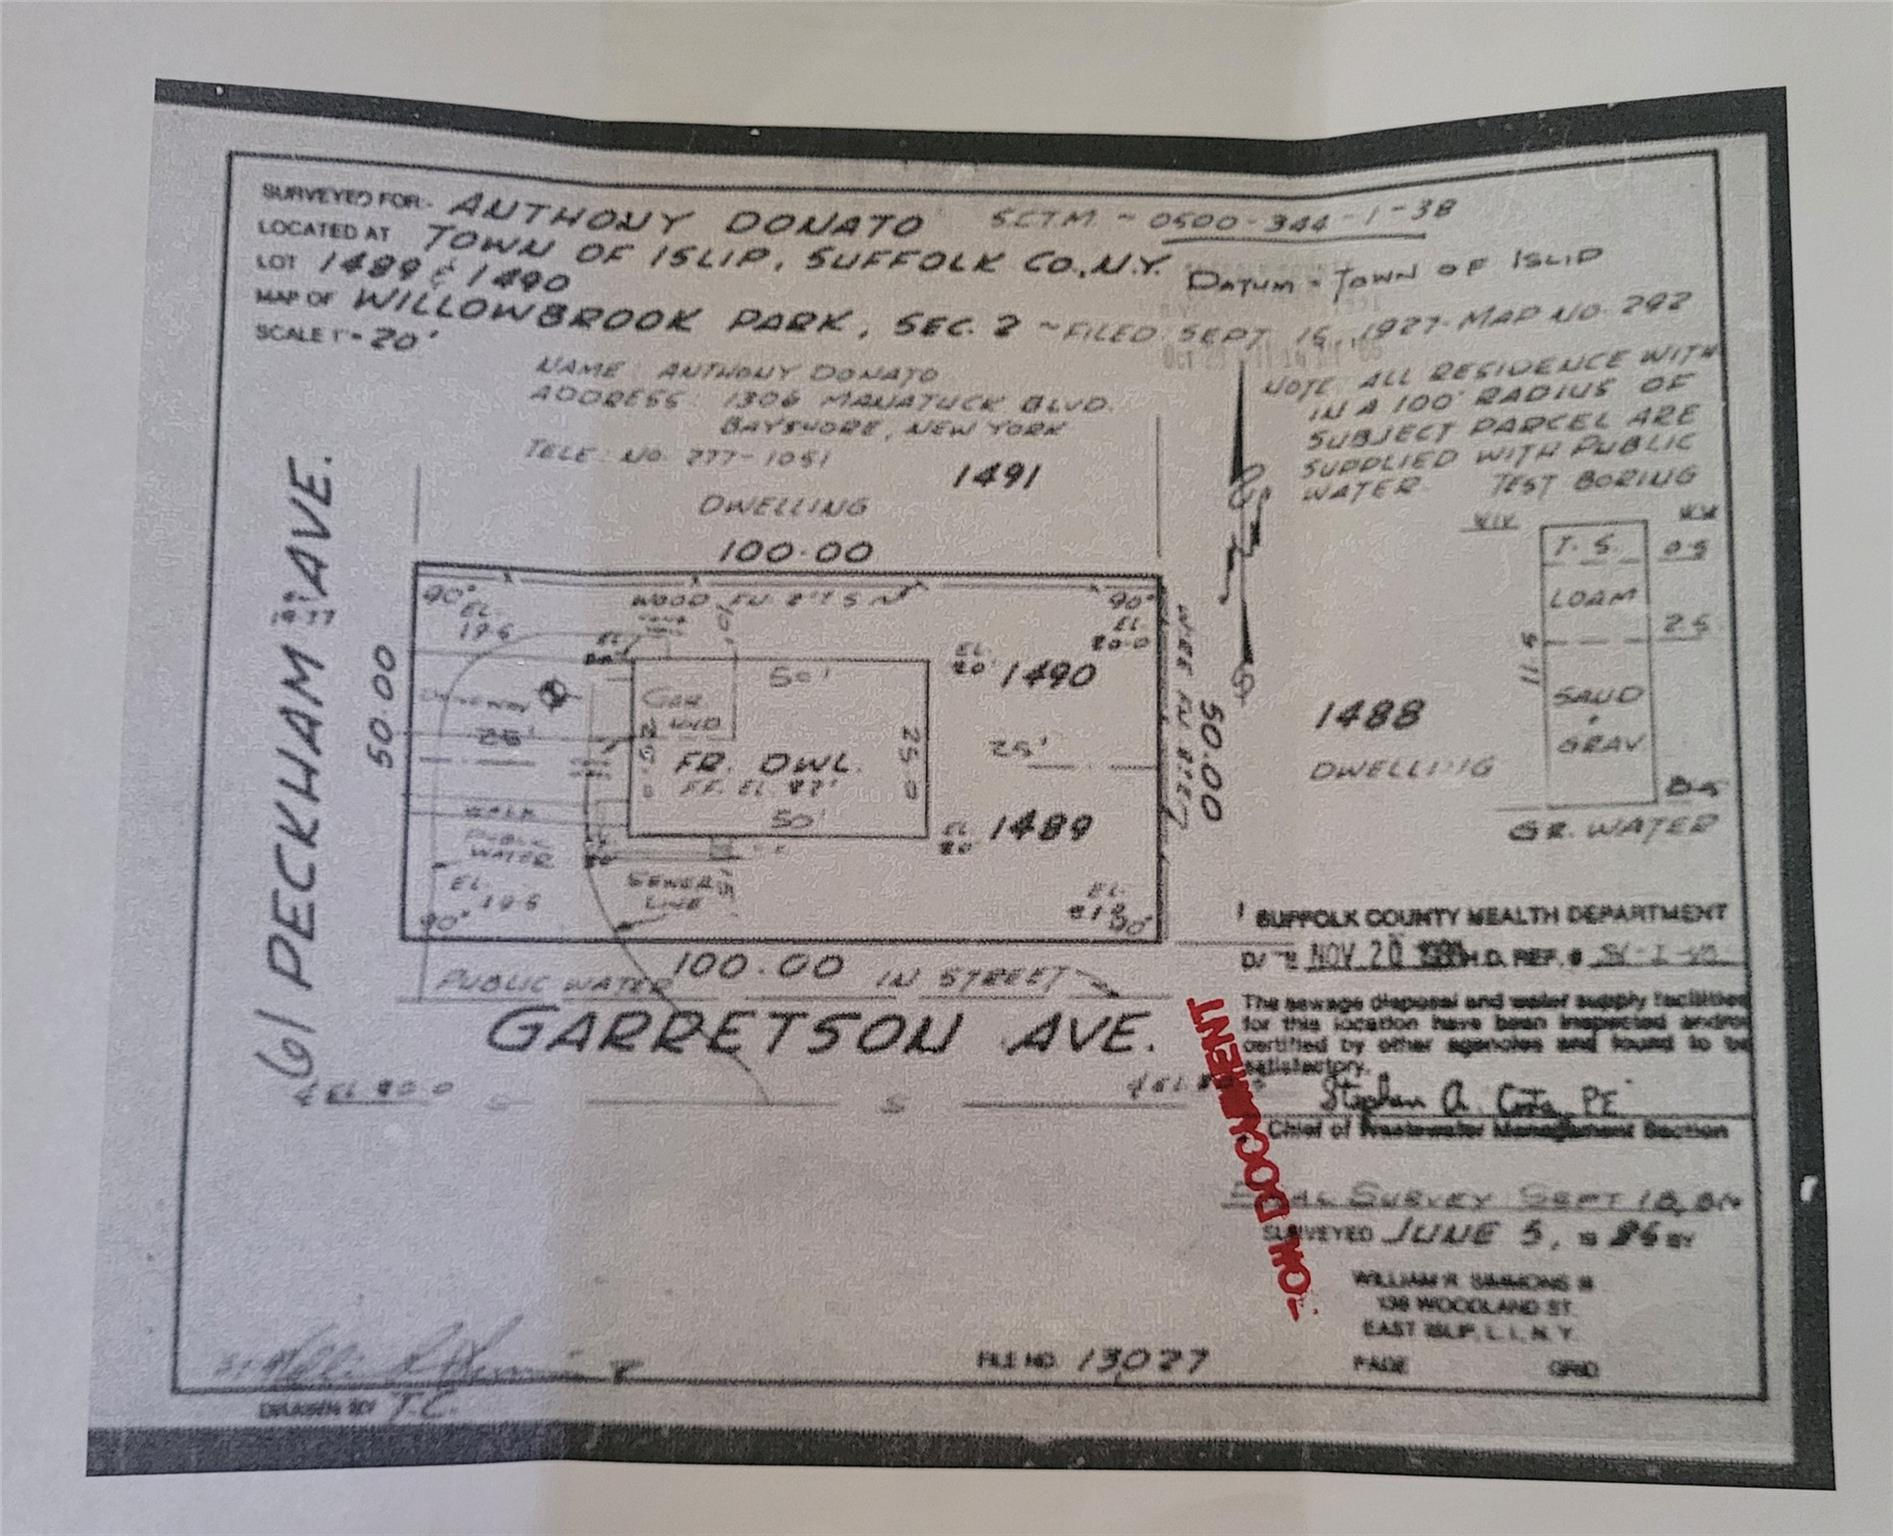 SURVEYED FOR:- ANTHONY DONATO S.C.T.M. ~ 0500-344-1-38
LOCATED AT TOWN OF ISLIP, SUFFOLK CO., N.Y.
DATUM - TOWN OF ISLIP
LOT 1489 & 1490
MAP OF WILLOWBROOK PARK, SEC. 2 ~ FILED SEPT. 15, 1927 - MAP NO. 292
SCALE 1"= 20'
NAME: ANTHONY DONATO
ADDRESS: 1306 MANATUCK BLVD.
BAYSHORE, NEW YORK
TELE. NO. 277-1051
NOTE ALL RESIDENCE WITH
IN A 100' RADIUS OF
SUBJECT PARCEL ARE
SUPPLIED WITH PUBLIC
WATER
TEST BORING
T. S. 0.5
LOAM
2.5
11.5
SAND
&
GRAV.
GR. WATER
1491
DWELLING
100.00
90°
EL.
19.5
WOOD
90°
EL.
20.0
50.00
61 PECKHAM AVE.
DRIVEWAY
25'
GAR.
50'
25.0
25.0
FR. DWL.
50'
EL.
20'
1490
25'
EL.
20
1489
50.00
1488
DWELLING
WALK
PUBLIC
WATER
EL.
19.5
90°
SEWER
LINE
EL.
90°
100.00
PUBLIC WATER IN STREET
GARRETSON AVE.
S S
SUFFOLK COUNTY HEALTH DEPARTMENT
NOV 20 H.D. REF. #
The sewage disposal and water supply facilities
for this location have been inspected and/or
certified by other agencies and found to be
satisfactory.
Stephen A. Costa, PE
Chief of Wastewater Management Section
FINAL SURVEY SEPT 18,
SURVEYED JUNE 5, 19 86 BY
WILLIAM R. SIMMONS III
138 WOODLAND ST.
EAST ISLIP, L. I., N. Y.
FILE NO. 13027 PAGE GRID
DRAWN BY T.C.